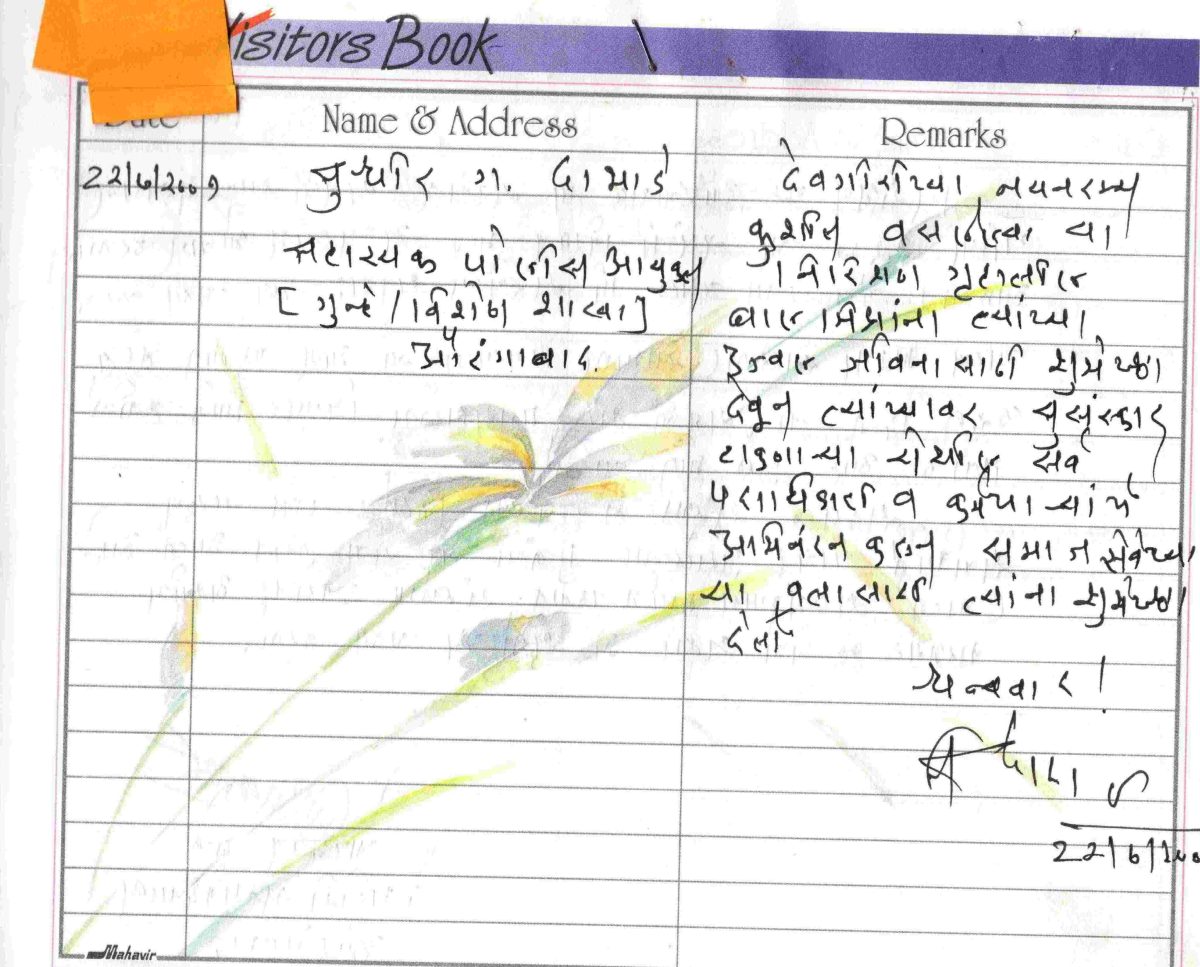 Visitors Book
Date
Name & Address
Remarks
सुधीर ग. दाभाडे
सहाय्यक पोलीस आयुक्त
[गुन्हे / विशेष शाखा]
औरंगाबाद.
देवगिरीच्या नयनरम्य
कुशीत वसलेल्या या
गृहातील
बाल मित्रांना त्यांच्या
उज्वल जीवनासाठी शुभेच्छा
देवून त्यांच्यावर सुसंस्कार
टाकणाऱ्या येथील सर्व
पदाधिकारी व
अभिनंदन करून समाज सेवेच्या
या त्यांना शुभेच्छा
देतो
धन्यवाद !
Mahavir